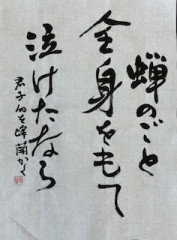 蝉のごと
全身をもて
泣けたなら
君子句を峰蘭かく